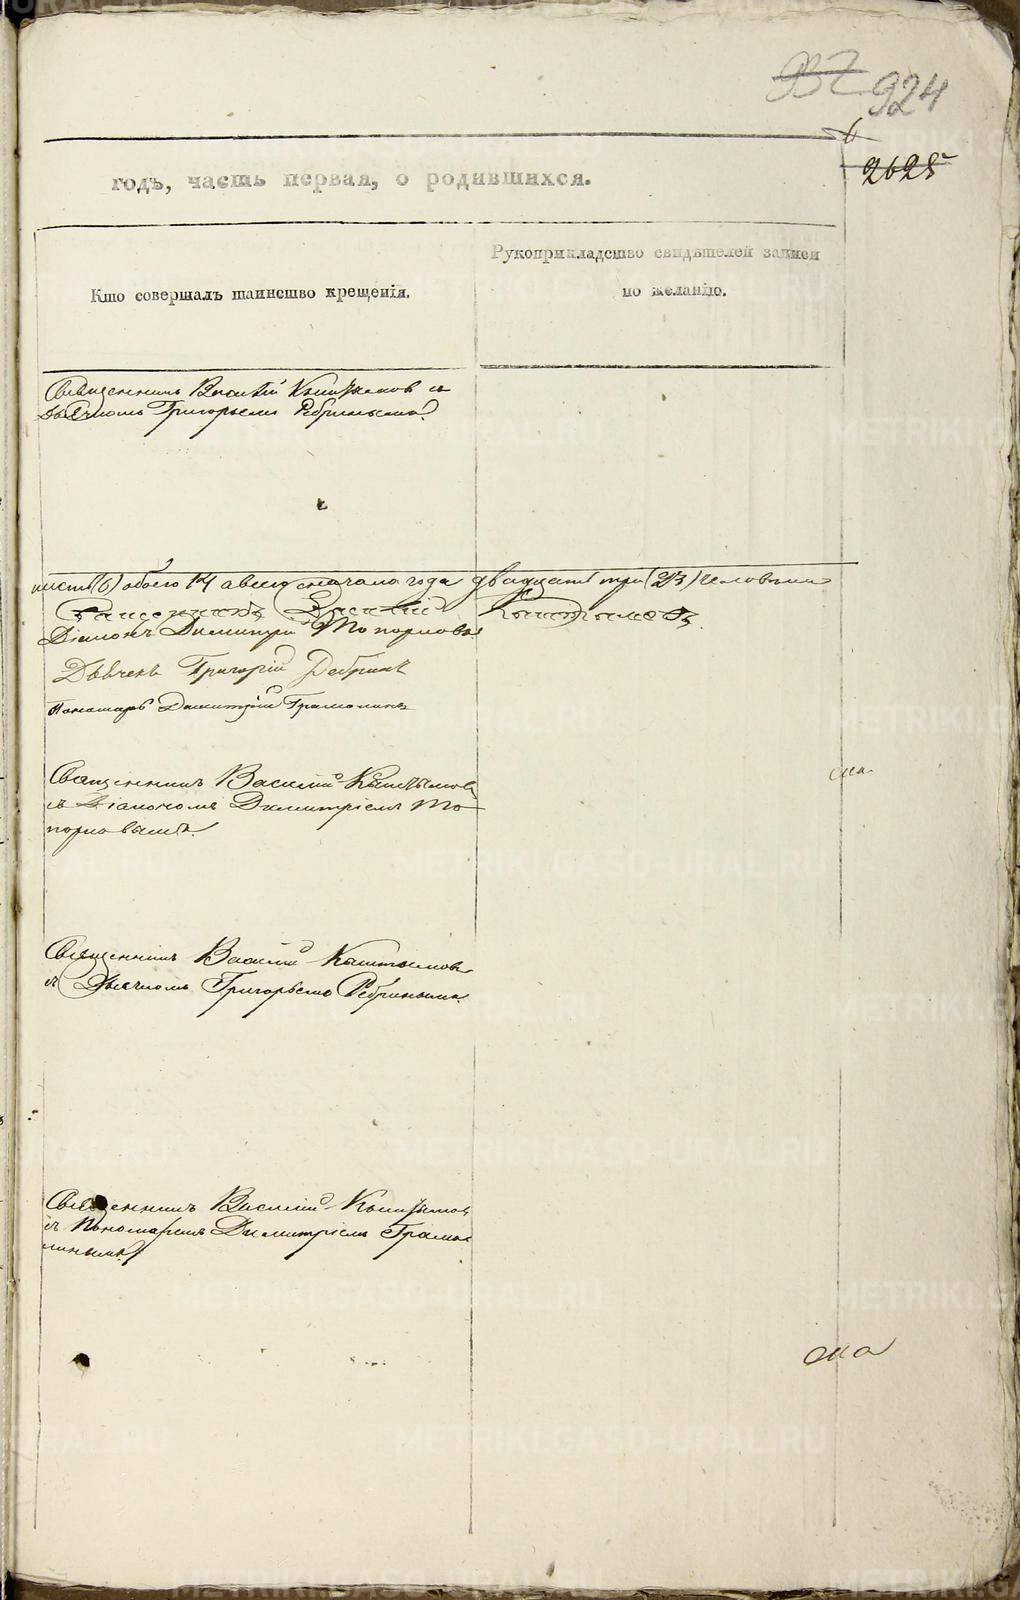 937 924
6
2625
годъ, часть первая, о родившихся.
Кто совершалъ таинство крещенія.
Рукоприкладство свидѣтелей записи
по желанію.
Священникъ Василій Кыштымов съ
Дьячкомъ Григорьемъ Ребринымъ.
шесть (6) обоего 14 а всего сначала года двадцать три (23) человека
Священникъ Василій Кыштымовъ
Діаконъ Димитрій Топорковъ.
Дьячекъ Григорій Ребринъ
Пономарь Димитрій Грамолинъ
Священникъ Василій Кыштымовъ
съ Діакономъ Димитріемъ То-
порковымъ.
Священникъ Василій Кыштымовъ
съ Дьячкомъ Григорьемъ Ребринымъ.
Священникъ Василій Кыштымов
съ Пономаремъ Димитріемъ Грамо-
линымъ.
METRIKI.GASO-URAL.RU